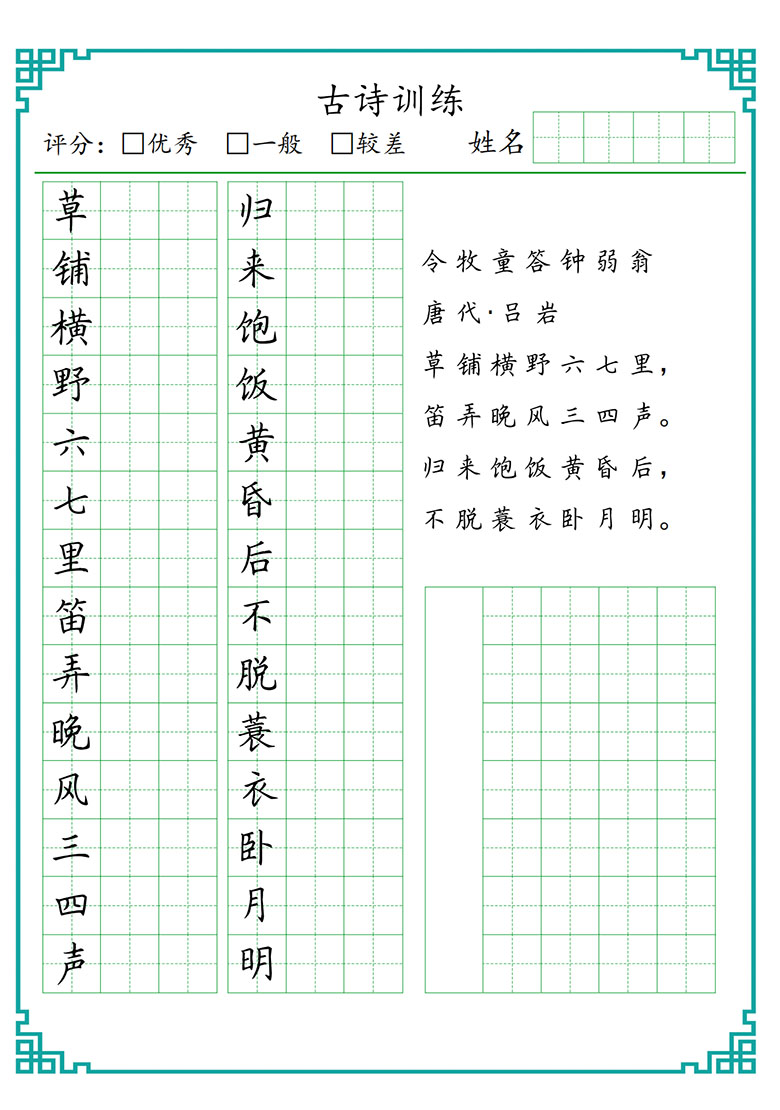 古诗训练
评分：□优秀 □一般 □较差 姓名
草铺横野六七里笛弄晚风三四声
归来饱饭黄昏后不脱蓑衣卧月明
令牧童答钟弱翁
唐代·吕岩
草铺横野六七里，
笛弄晚风三四声。
归来饱饭黄昏后，
不脱蓑衣卧月明。